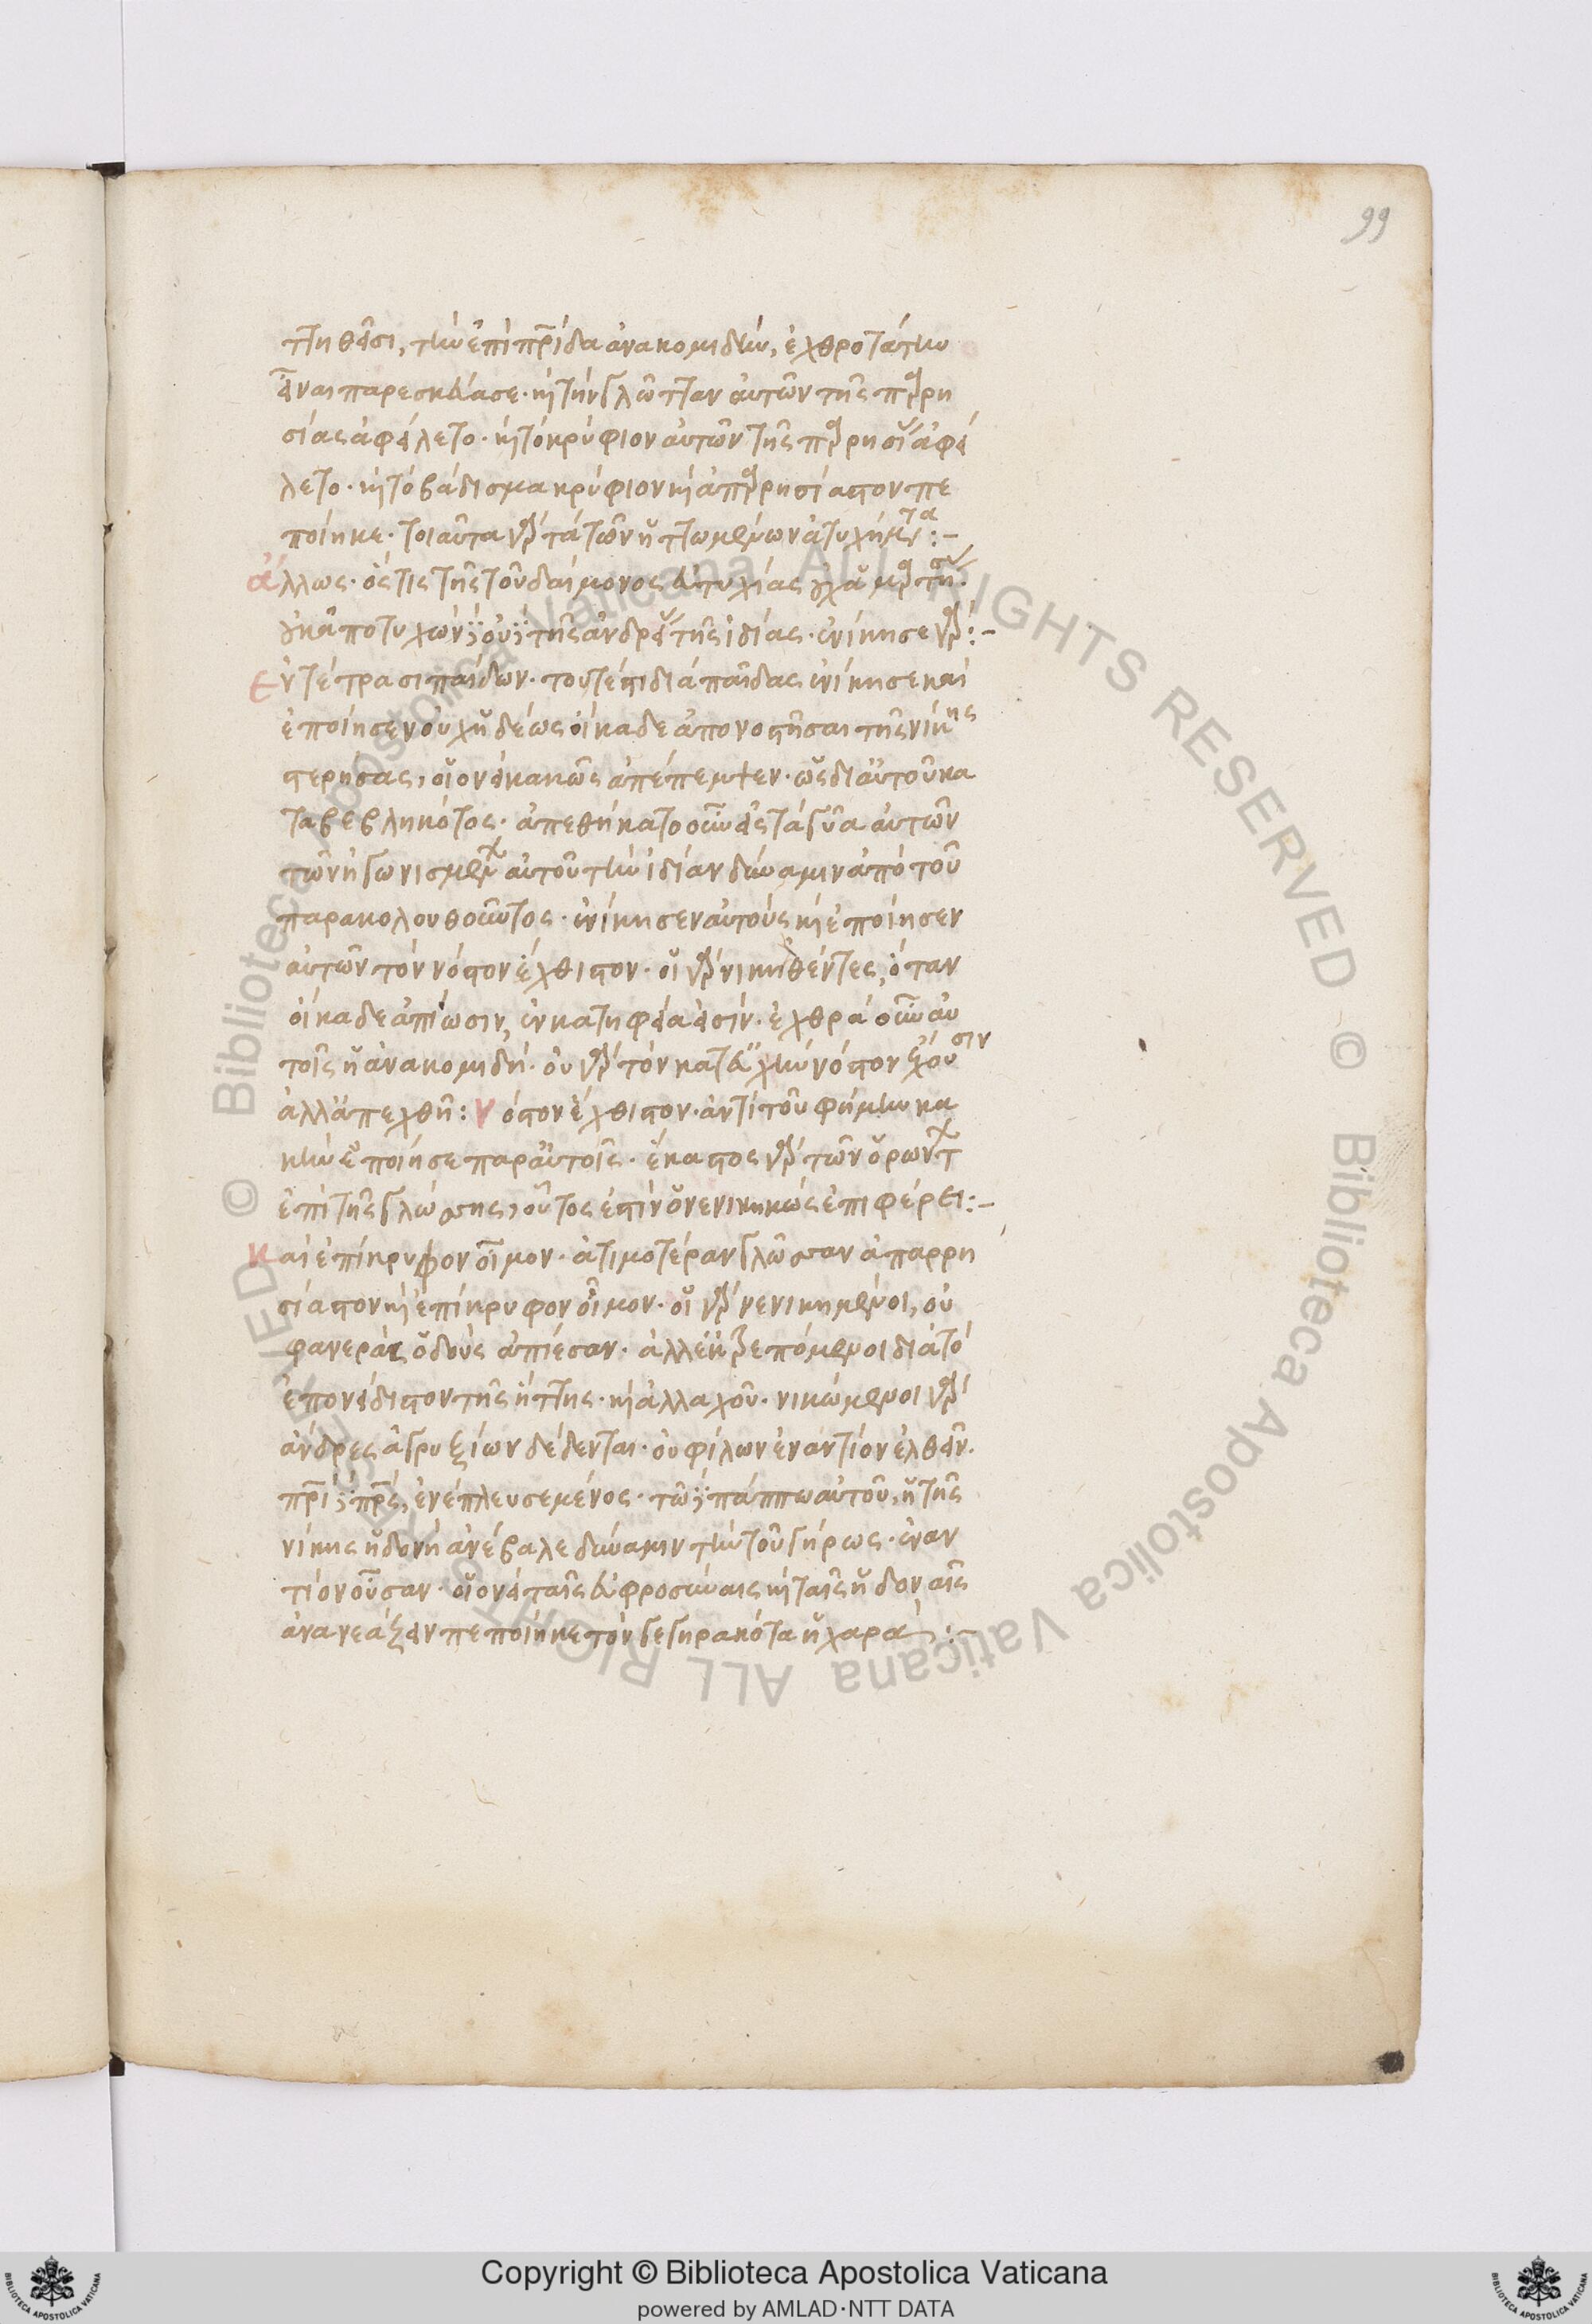 99
ττηθεῖσι, τὴν ἐπὶ πρίδα ἀνακομιδὴν, ἐχθροτάτην
εἶναι παρεσκεύασε· κὴ τὴν γλῶτταν αὐτῶν τῆς παρρη
σίας ἀφείλετο· κὴ τὸ κρύφιον αὐτῶν τῆς παρρησίας ἀφεί
λετο· κὴ τὸ βάδισμα κρύφιον κὴ ἀπαρρησίαστον πε
ποίηκε· τοιαῦτα γὰρ τὰ τῶν ἡττωμένων ἀτυχήματα:-
ἄλλως· ὅς τις τῆς τοῦ δαίμονος εὐτυχίας
οὐκ ἀποτυχὼν οὐ τῆς ἀνδρείας τῆς ἰδίας· ἐνίκησε γάρ:-
Ἐν τέτρασι παίδων· τουτέστι διὰ παῖδας ἐνίκησε καὶ
ἐποίησεν οὐχ ἡδέως οἴκαδε ἀπονοστῆσαι τῆς νίκης
στερήσας, οἱονεὶ κακῶς ἀπέπεμψεν· ὡς δι' αὐτοῦ κα
ταβεβληκότος· ἀπεθήκατο οὖν εἰς τὰ γυῖα αὐτῶν
τῶν ἠγωνισμένων αὐτοῦ τὴν ἰδίαν δύναμιν ἀπὸ τοῦ
παρακολουθοῦντος· ἐνίκησεν αὐτοὺς κὴ ἐποίησεν
αὐτῶν τὸν νόστον ἔχθιστον· οἱ γὰρ νικηθέντες, ὅταν
οἴκαδε ἀπίωσιν, ἐν κατηφείᾳ εἰσίν· ἐχθρὰ οὖν αὐ
τοῖς ἡ ἀνακομιδή· οὐ γὰρ τὸν κατ' εὐχὴν νόστον ἔχουσιν
ἀλλ' ἀπεχθῆ: Νόστον ἔχθιστον· ἀντὶ τοῦ φήμην κα
κὴν ἐποίησε παρ' αὐτοῖς· ἕκαστος γὰρ τῶν ὁρώντων
ἐπὶ τῆς γλώσσης, οὗτος ἐστὶν ὁ νενικηκὼς ἐπιφέρει:-
Καὶ ἐπίκρυφον οἶμον· ἀτιμοτέραν γλῶσσαν ἀπαρρη
σίαστον κὴ ἐπίκρυφον οἶμον· οἱ γὰρ νενικημένοι, οὐ
φανερὰς ὁδοὺς ἀπίεσαν· ἀλλ' ἐκτρεπόμενοι διὰ τὸ
ἐπονείδιστον τῆς ἥττης· κὴ ἀλλαχοῦ· νικώμενοι γὰρ
ἄνδρες ἀγρυξίων δέδενται· οὐ φίλων ἐναντίον ἐλθεῖν.
πρὶ πρς, ἐνέπλευσε μένος· τῷ πάππω αὐτοῦ, ἡ τῆς
νίκης ἡδονὴ ἀνέβαλε δύναμιν τὴν τοῦ γήρως· ἐναν
τίον οὖσαν· οἱονεὶ ταῖς εὐφροσύναις κὴ ταῖς ἡδοναῖς
ἀνανεάζειν πεποίηκε τὸν γεγηρακότα ἡ χαρά:-
Copyright © Biblioteca Apostolica Vaticana
powered by AMLAD·NTT DATA